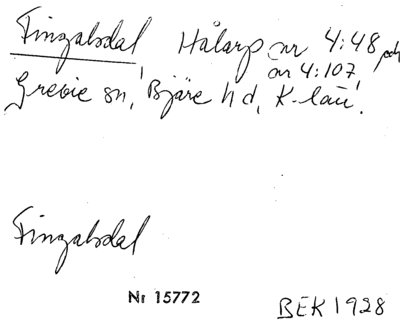 Fingalsdal, Hålarp nr 4:48 och
nr 4:107,
Grevie sn, Bjäre hd, K-län.
Fingalsdal
Nr 15772
BEK 1928